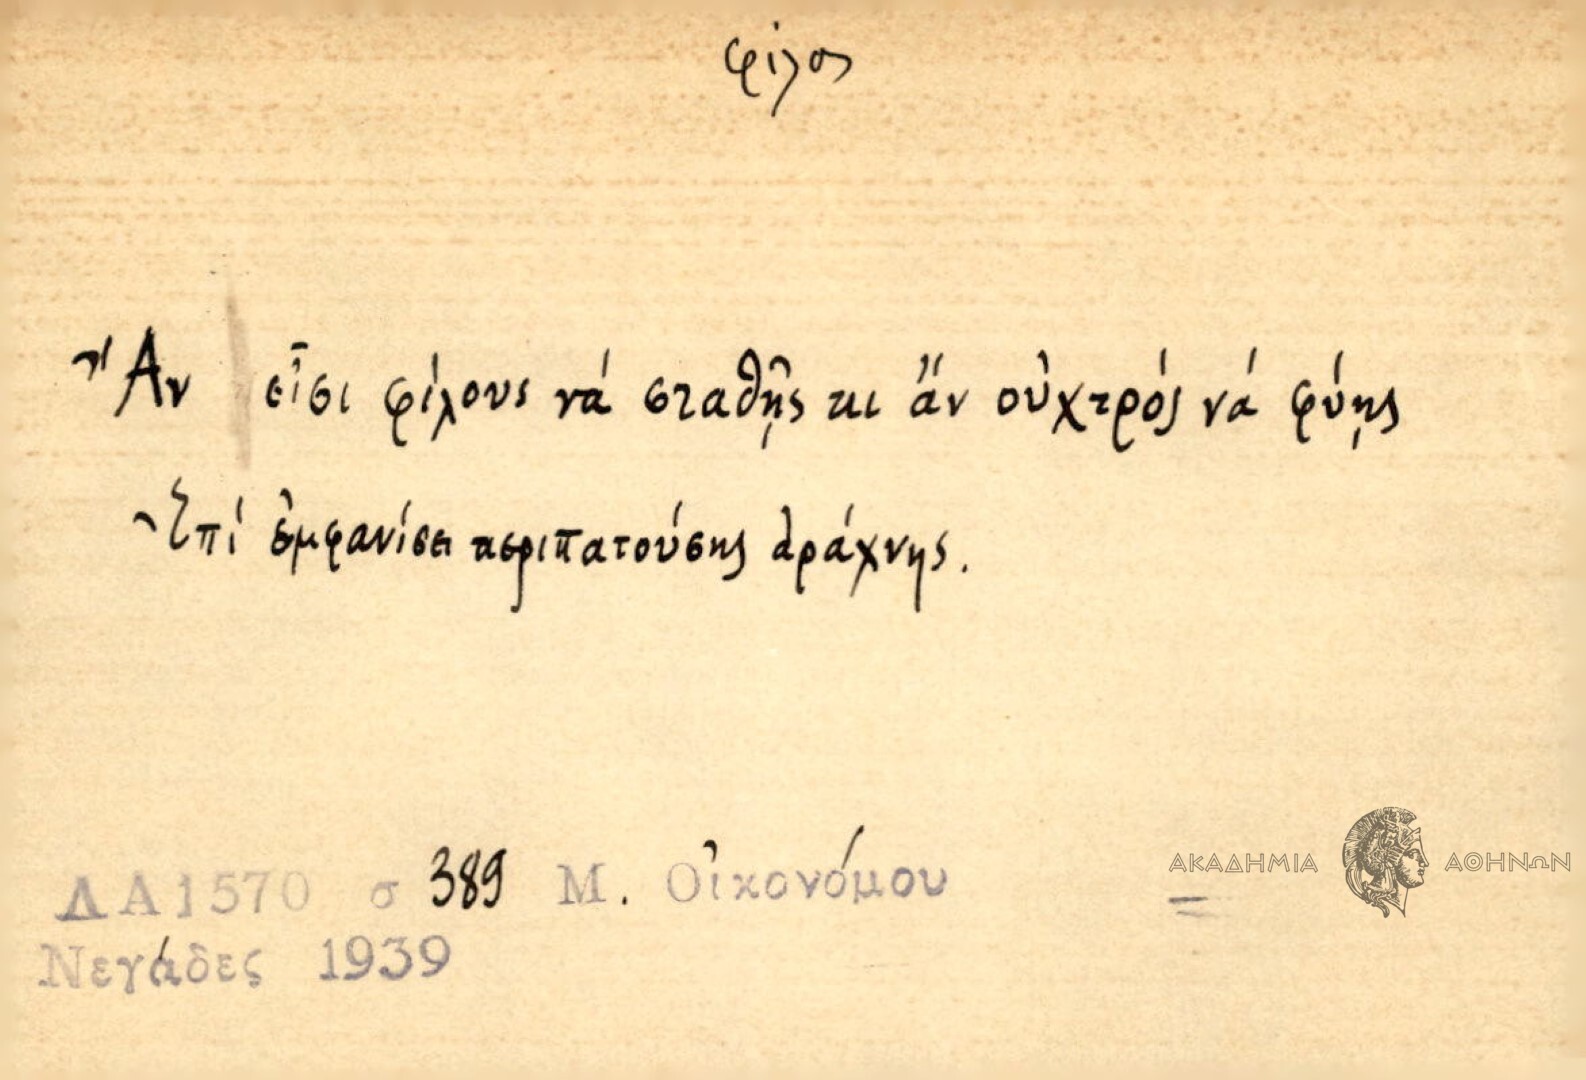 φίλος
Ἄν εἶσι φίλους νά σταθῇς κι ἄν οὐχτρός νά φύῃς
Ἐπί ἐμφανίσει περιπατούσης ἀράχνης.
ΔΑ1570 σ 389 Μ. Οἰκονόμου =
ΑΚΑΔΗΜΙΑ ΑΘΗΝΩΝ
Νεγάδες 1939